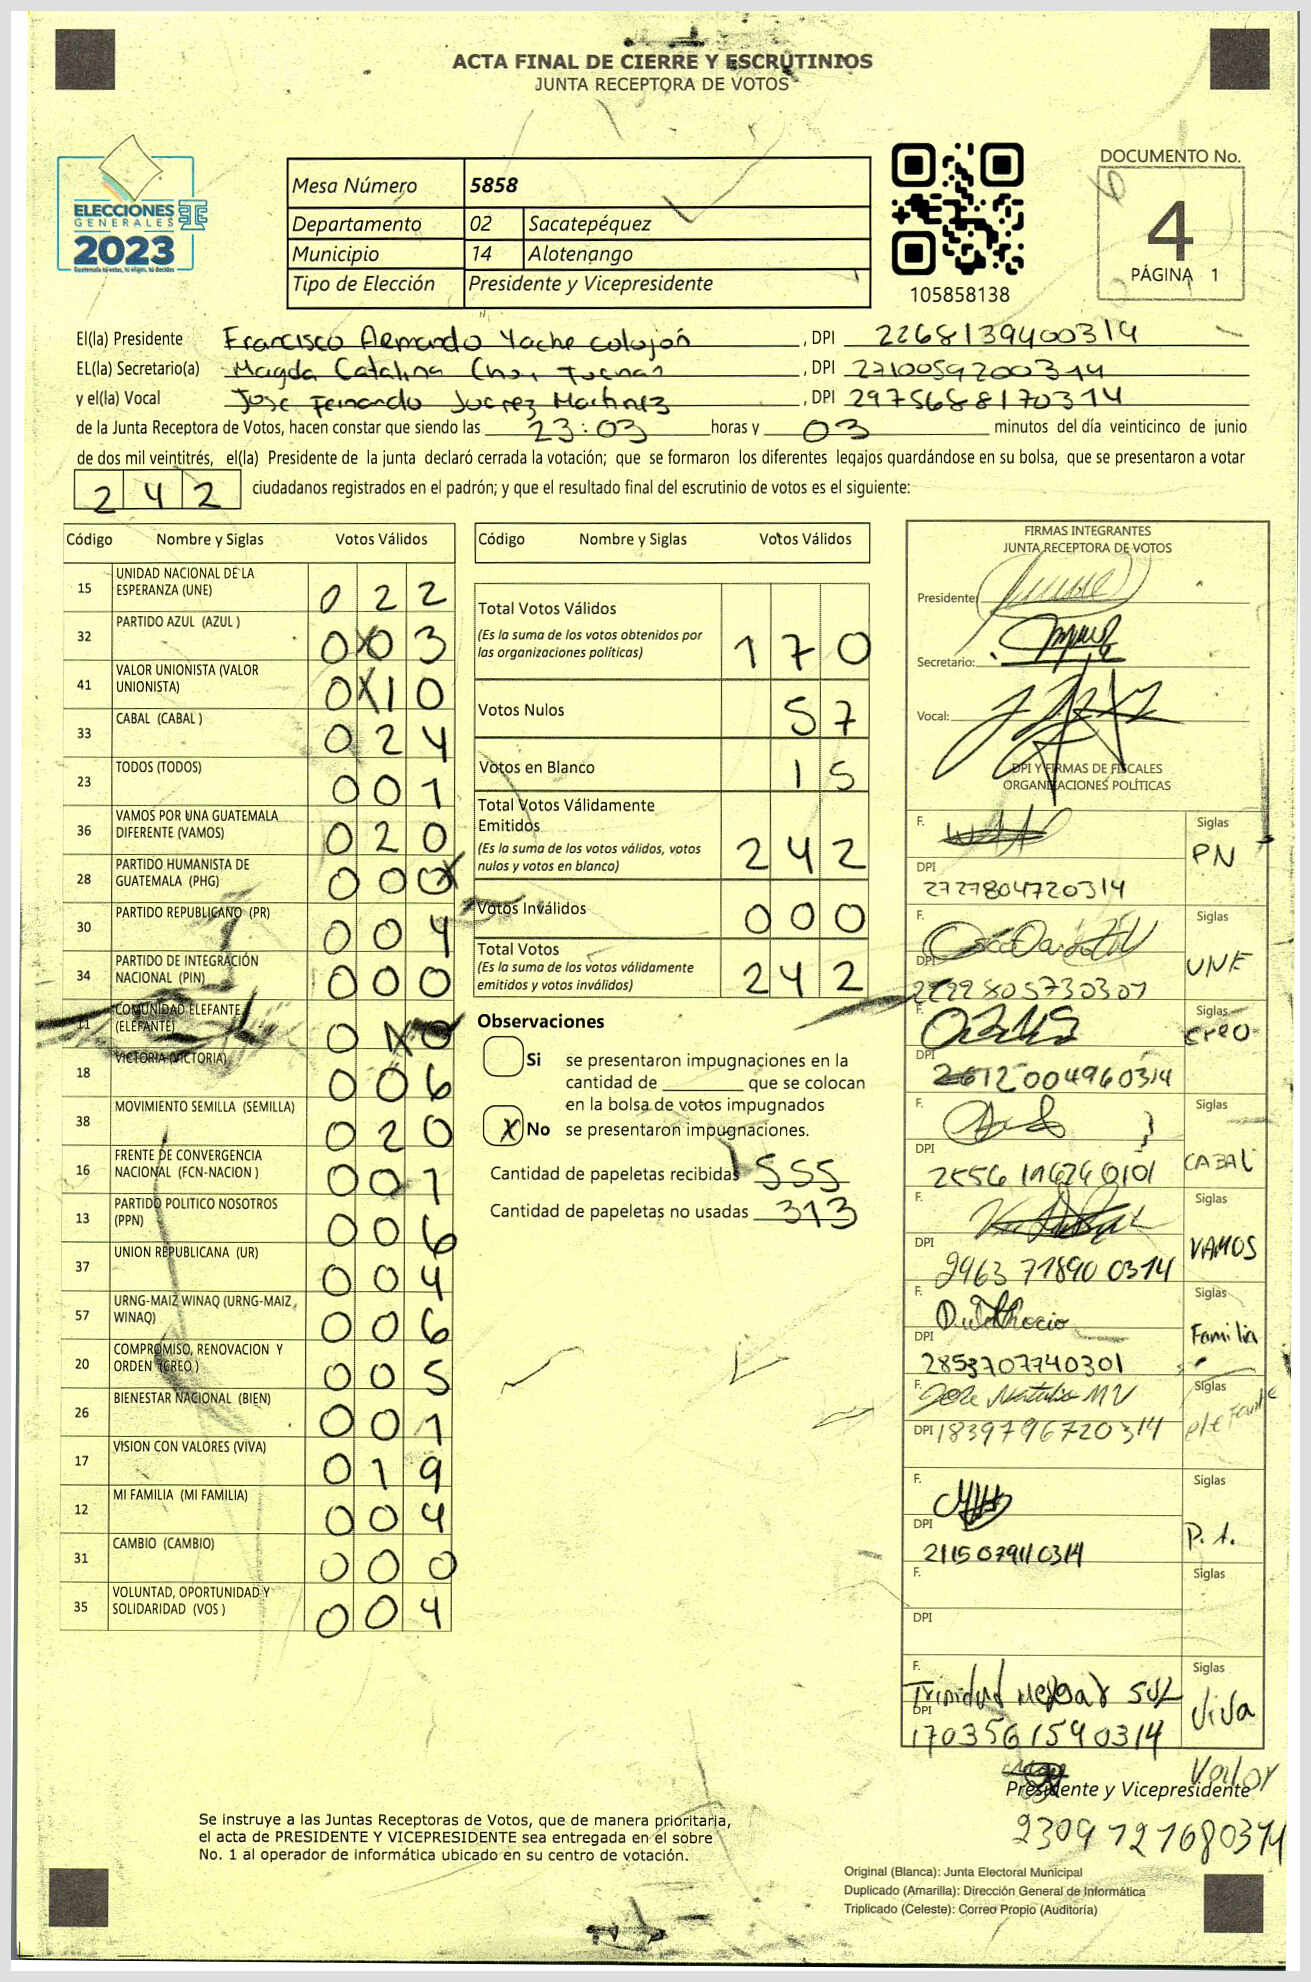 ACTA FINAL DE CIERRE Y ESCRUTINIOS
JUNTA RECEPTORA DE VOTOS
ELECCIONES
GENERALES
2023
Guatemala tú votas, tú eliges, tú decides
Mesa Número 5858
Departamento 02 Sacatepéquez
Municipio 14 Alotenango
Tipo de Elección Presidente y Vicepresidente
105858138
DOCUMENTO No.
4
PÁGINA 1
El(la) Presidente Francisco Armando Yache Colojón, DPI 2268139400314
EL(la) Secretario(a) Magda Catalina, DPI 2710059200314
y el(la) Vocal Jose Fernando Juarez Martinez, DPI 2975688170314
de la Junta Receptora de Votos, hacen constar que siendo las 23:03 horas y 03 minutos del día veinticinco de junio
de dos mil veintitrés, el(la) Presidente de la junta declaró cerrada la votación; que se formaron los diferentes legajos guardándose en su bolsa, que se presentaron a votar
242 ciudadanos registrados en el padrón; y que el resultado final del escrutinio de votos es el siguiente:
Código Nombre y Siglas Votos Válidos
15 UNIDAD NACIONAL DE LA ESPERANZA (UNE) 0 2 2
32 PARTIDO AZUL (AZUL ) 0 0 3
41 VALOR UNIONISTA (VALOR UNIONISTA) 0 1 0
33 CABAL (CABAL ) 0 2 4
23 TODOS (TODOS) 0 0 1
36 VAMOS POR UNA GUATEMALA DIFERENTE (VAMOS) 0 2 0
28 PARTIDO HUMANISTA DE GUATEMALA (PHG) 0 0 0
30 PARTIDO REPUBLICANO (PR) 0 0 4
34 PARTIDO DE INTEGRACIÓN NACIONAL (PIN) 0 0 0
11 COMUNIDAD ELEFANTE (ELEFANTE) 0 1 0
18 VICTORIA (VICTORIA) 0 0 6
38 MOVIMIENTO SEMILLA (SEMILLA) 0 2 0
16 FRENTE DE CONVERGENCIA NACIONAL (FCN-NACION ) 0 0 1
13 PARTIDO POLITICO NOSOTROS (PPN) 0 0 6
37 UNION REPUBLICANA (UR) 0 0 4
57 URNG-MAIZ WINAQ (URNG-MAIZ WINAQ) 0 0 6
20 COMPROMISO, RENOVACION Y ORDEN (CREO ) 0 0 5
26 BIENESTAR NACIONAL (BIEN) 0 0 1
17 VISION CON VALORES (VIVA) 0 1 9
12 MI FAMILIA (MI FAMILIA) 0 0 4
31 CAMBIO (CAMBIO) 0 0 0
35 VOLUNTAD, OPORTUNIDAD Y SOLIDARIDAD (VOS ) 0 0 4
Código Nombre y Siglas Votos Válidos
Total Votos Válidos
(Es la suma de los votos obtenidos por
las organizaciones políticas) 1 7 0
Votos Nulos 5 7
Votos en Blanco 1 5
Total Votos Válidamente
Emitidos
(Es la suma de los votos válidos, votos
nulos y votos en blanco) 2 4 2
Votos Inválidos 0 0 0
Total Votos
(Es la suma de los votos válidamente
emitidos y votos inválidos) 2 4 2
Observaciones
Si se presentaron impugnaciones en la
cantidad de que se colocan
en la bolsa de votos impugnados
X No se presentaron impugnaciones.
Cantidad de papeletas recibidas 555
Cantidad de papeletas no usadas 313
FIRMAS INTEGRANTES
JUNTA RECEPTORA DE VOTOS
Presidente:
Secretario:
Vocal:
DPI Y FIRMAS DE FISCALES
ORGANIZACIONES POLÍTICAS
F. Siglas PN
DPI 2727804720314
F. Siglas UNE
DPI 2229805730301
F. Siglas creo
DPI 004960314
F. Siglas CABAL
DPI 2556
F. Siglas VAMOS
DPI 2963 71890 0314
F. Siglas Familia
DPI 2853707740301
F. Jose Natalio MV Siglas elefante
DPI 1839796720314
F. Siglas P.A.
DPI 2115079110314
F. Siglas
DPI
F. Trinidad Siglas ViVa
DPI 1703561590314
Valor
Presidente y Vicepresidente
2309727680314
Se instruye a las Juntas Receptoras de Votos, que de manera prioritaria,
el acta de PRESIDENTE Y VICEPRESIDENTE sea entregada en el sobre
No. 1 al operador de informática ubicado en su centro de votación.
Original (Blanca): Junta Electoral Municipal
Duplicado (Amarilla): Dirección General de Informática
Triplicado (Celeste): Correo Propio (Auditoría)